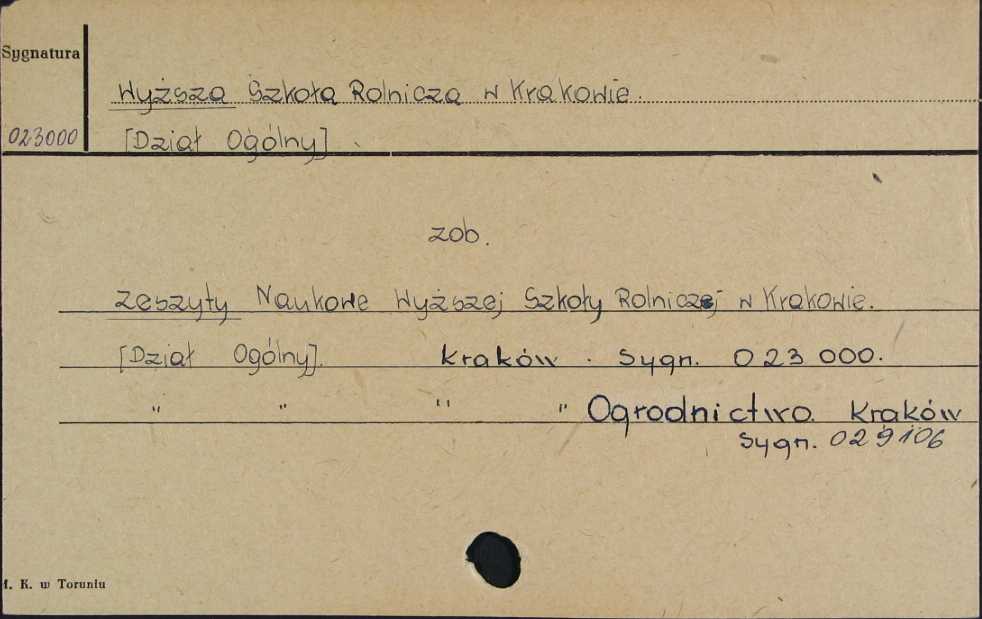 Sygnatura
Wyższa Szkoła Rolnicza w Krakowie.
023000 [Dział Ogólny]
zob.
Zeszyty Naukowe Wyższej Szkoły Rolniczej w Krakowie.
[Dział Ogólny]. Kraków. Sygn. 023 000.
" " " " Ogrodnictwo. Kraków
Sygn. 029106
K. w Toruniu